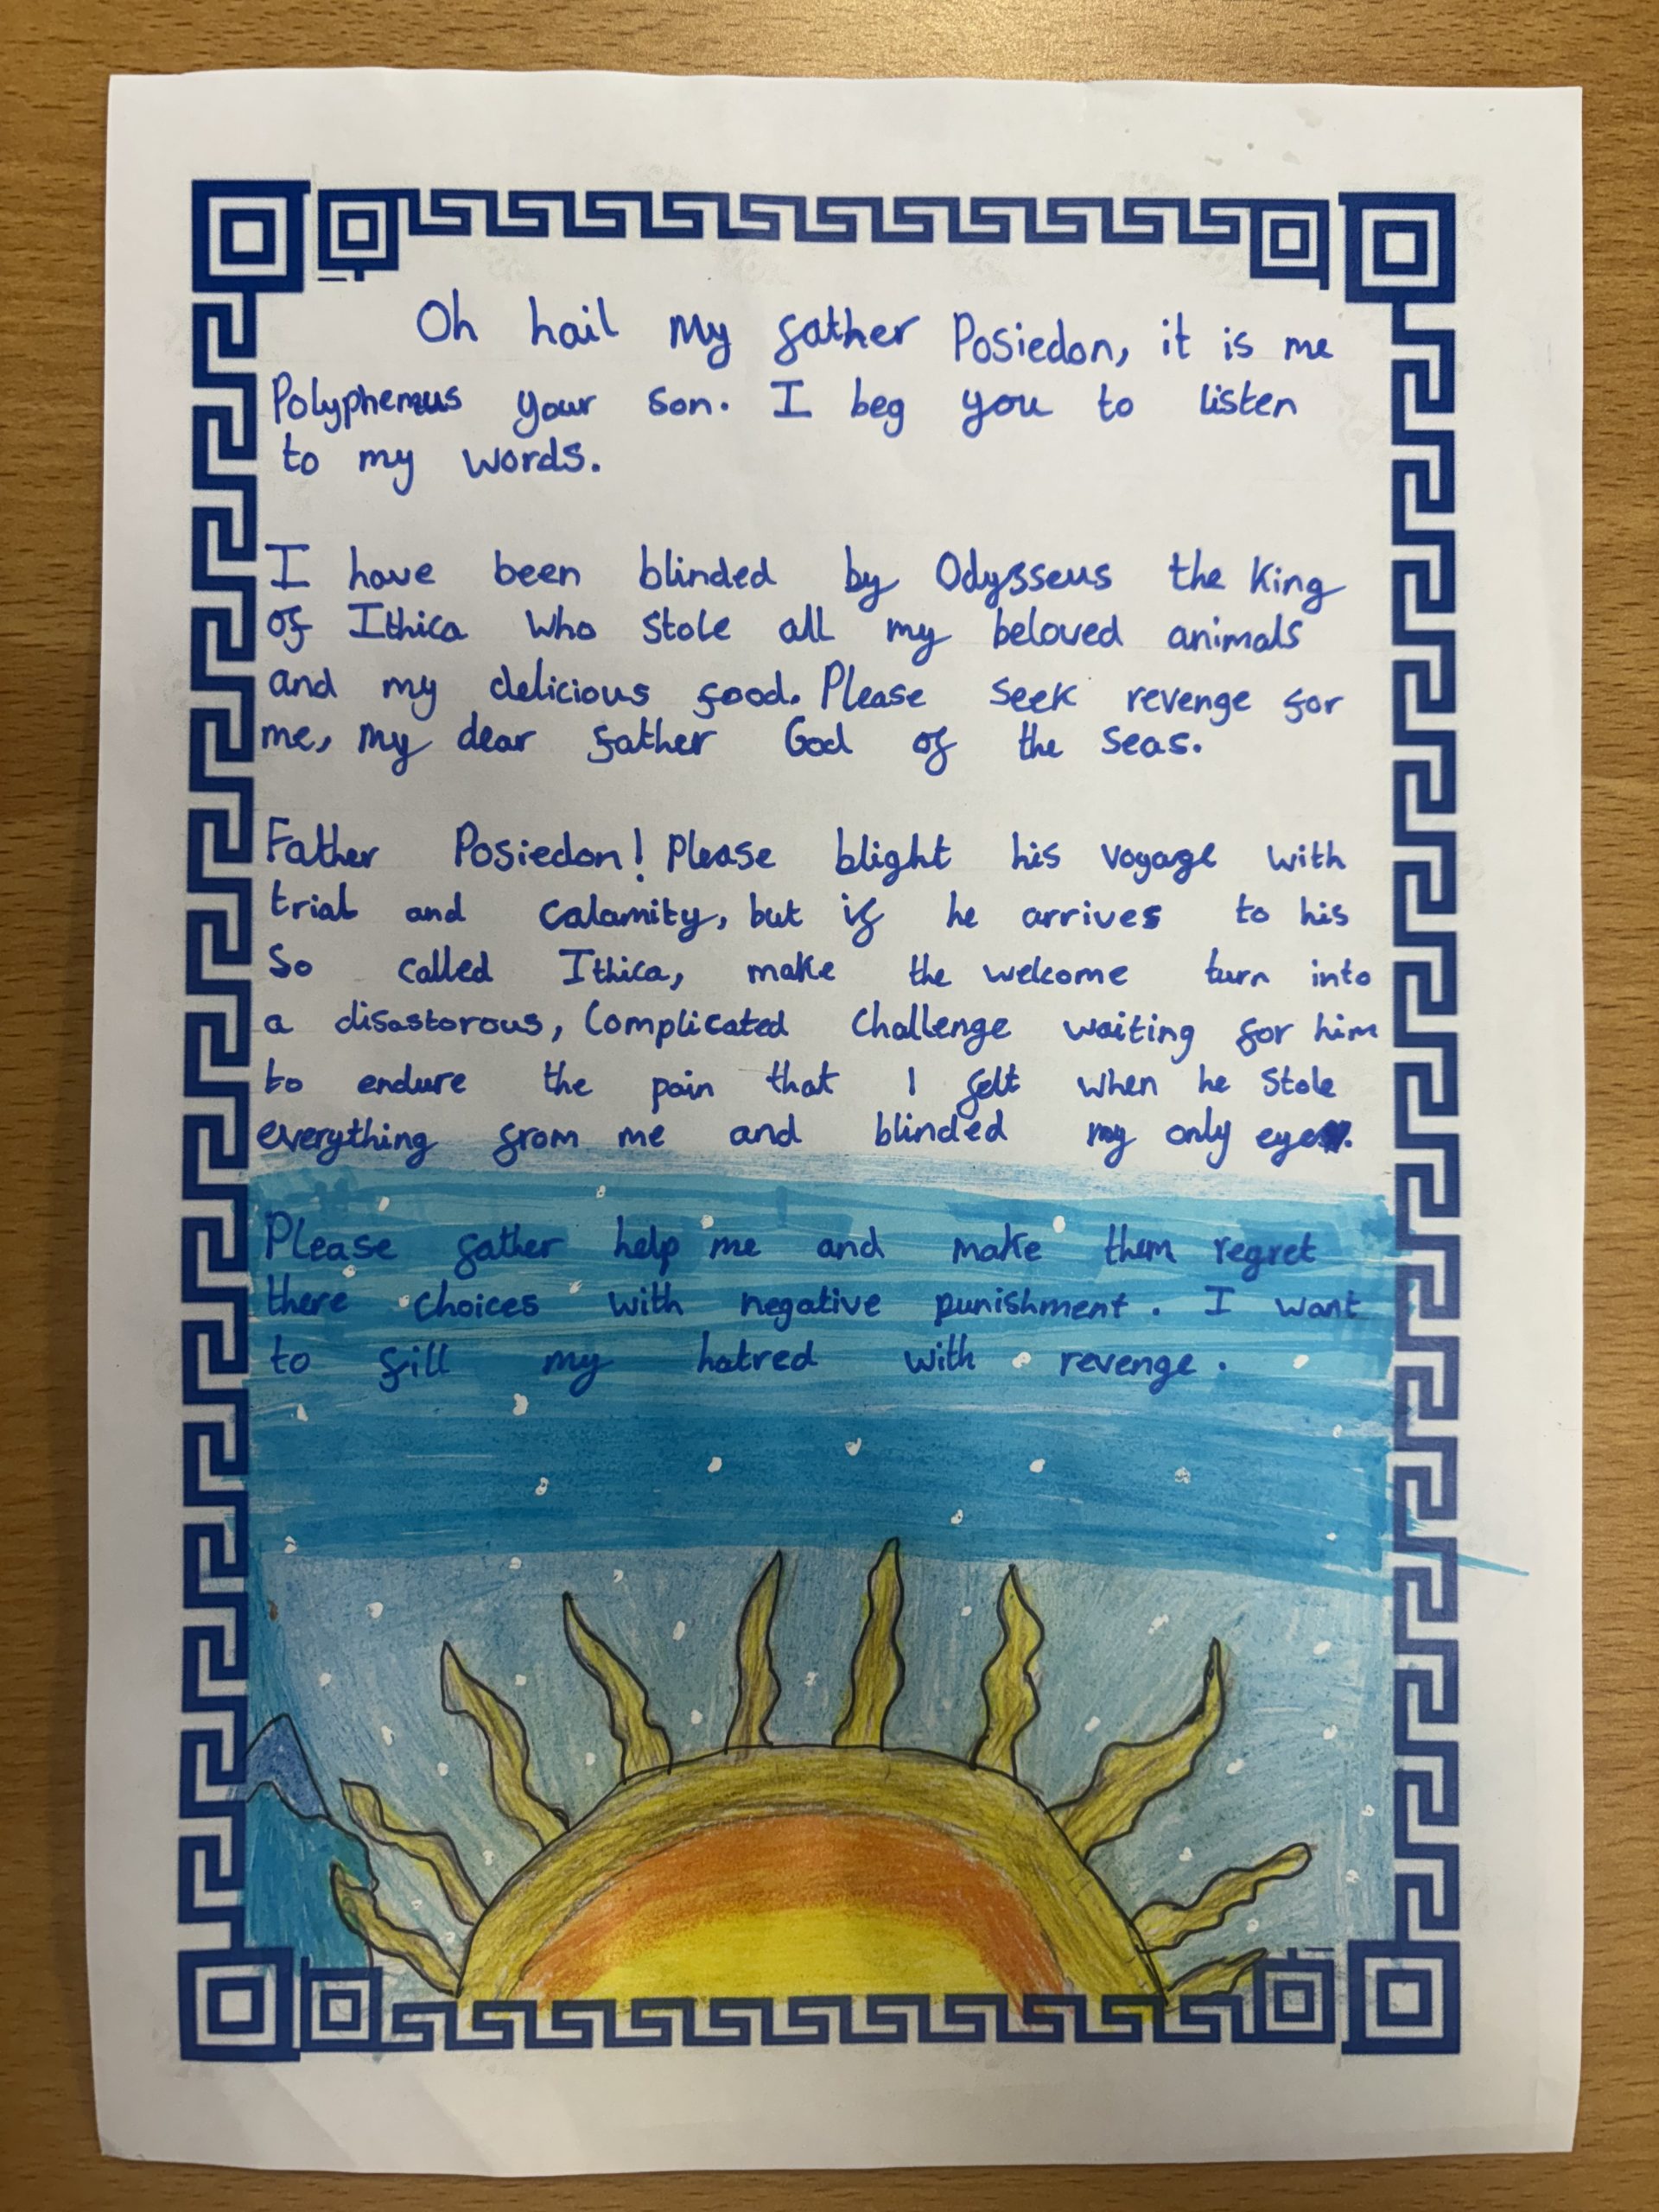 Oh hail My father Posiedon, it is me
Polyphemus your son. I beg you to listen
to my words.
I have been blinded by Odysseus the King
of Ithica who stole all my beloved animals
and my delicious food. Please seek revenge for
me, my dear father God of the seas.
Father Posiedon! Please blight his voyage with
trial and calamity, but if he arrives to his
so called Ithica, make the welcome turn into
a disastorous, Complicated challenge waiting for him
to endure the pain that I felt when he stole
everything from me and blinded my only eye.
Please father help me and make them regret
there choices with negative punishment. I want
to fill my hatred with revenge.